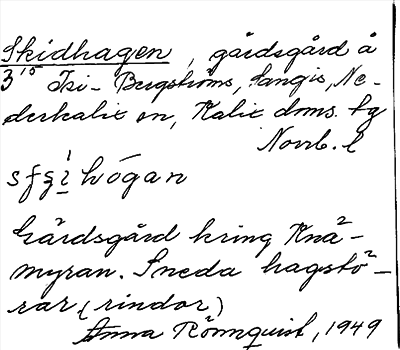 Skidhagen, gårdsgård å
3¹⁵ Isi- Bergströms, Langis, Ne-
derkalix sn, Kalix dms. tg
Norrb. l
Gärdsgård kring Knä-
myran. Sneda hagstö-
rar (rindor)
Anna Rönnquist, 1949